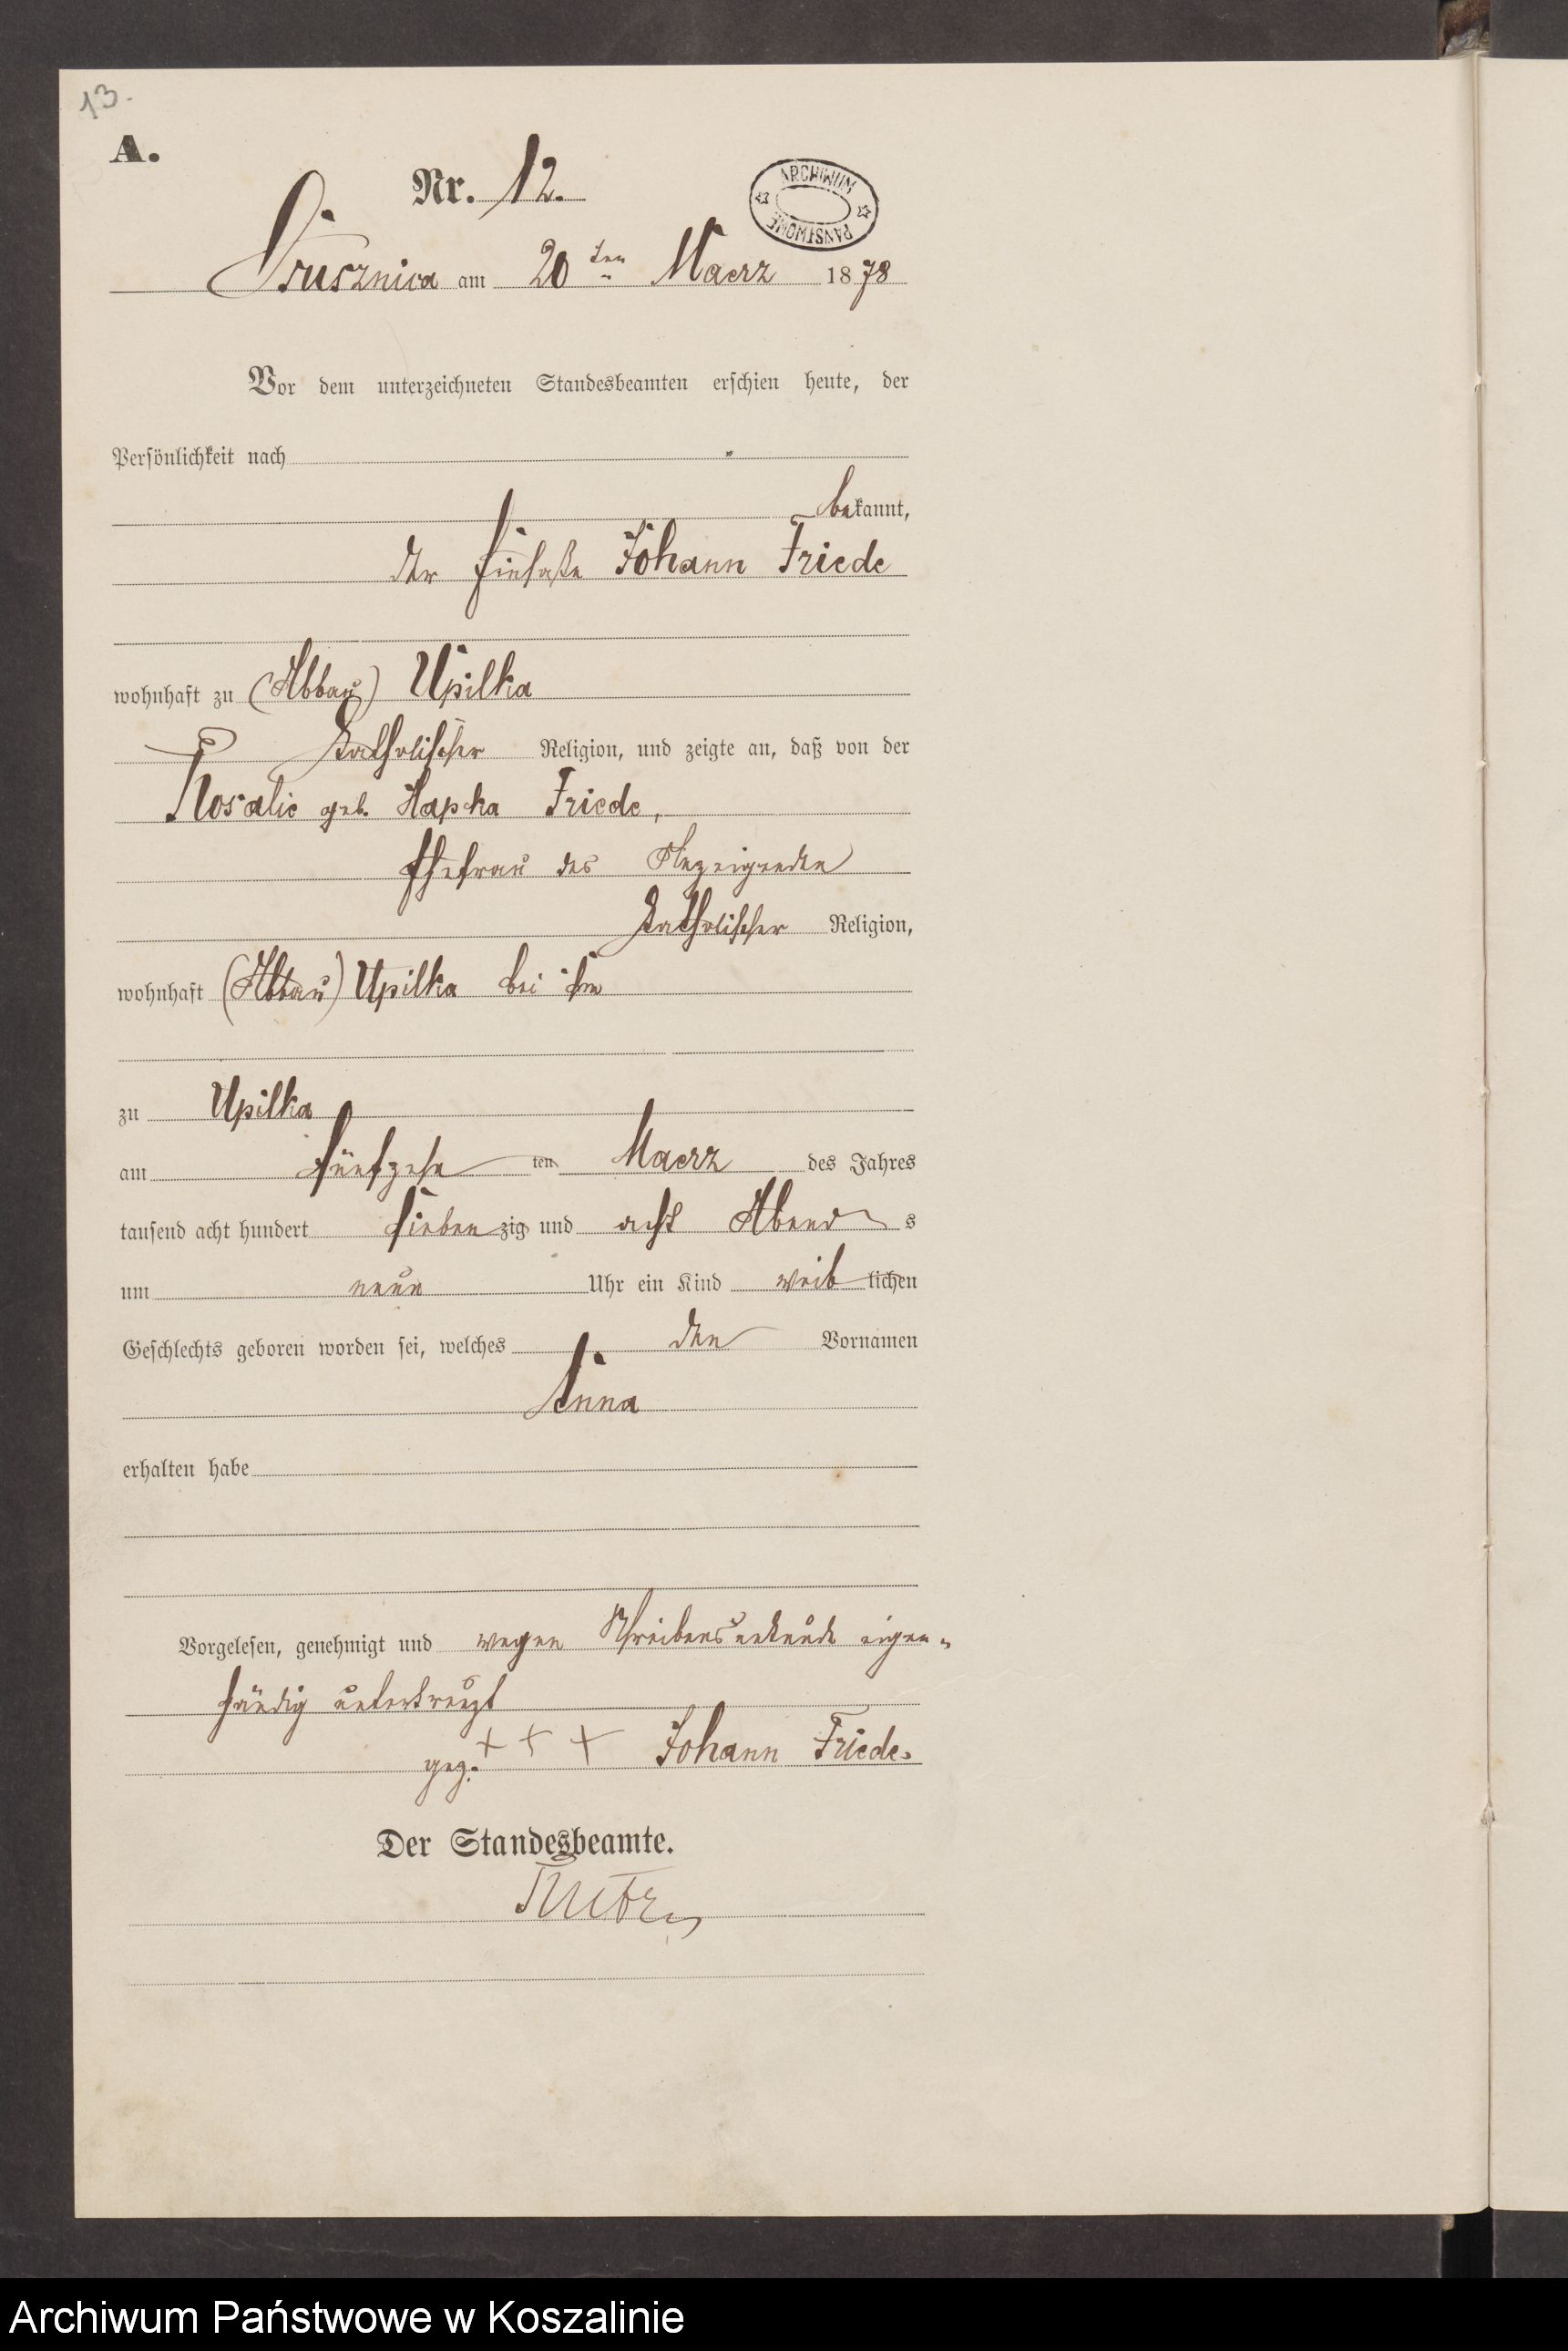 13.
A.
Nr. 12.
ARCHIWUM
PAŃSTWOWE
Prusznica am 20ten Maerz 1878
Vor dem unterzeichneten Standesbeamten erschien heute, der
Persönlichkeit nach
bekannt,
der Einsaße Johann Friede
wohnhaft zu (Abbau) Upilka
katholischer Religion, und zeigte an, daß von der
Rosalie geb. Hapka Friede,
Ehefrau des Anzeigenden
katholischer Religion,
wohnhaft (Abbau) Upilka bei ihm
zu Upilka
am fünfzehn ten Maerz des Jahres
tausend acht hundert sieben zig und acht Abend s
um neun Uhr ein Kind weib lichen
Geschlechts geboren worden sei, welches den Vornamen
Anna
erhalten habe
Vorgelesen, genehmigt und wegen Schreibensunkunde eigen-
händig unterkreuzt
gez. + + + Johann Friede.
Der Standesbeamte.
Archiwum Państwowe w Koszalinie